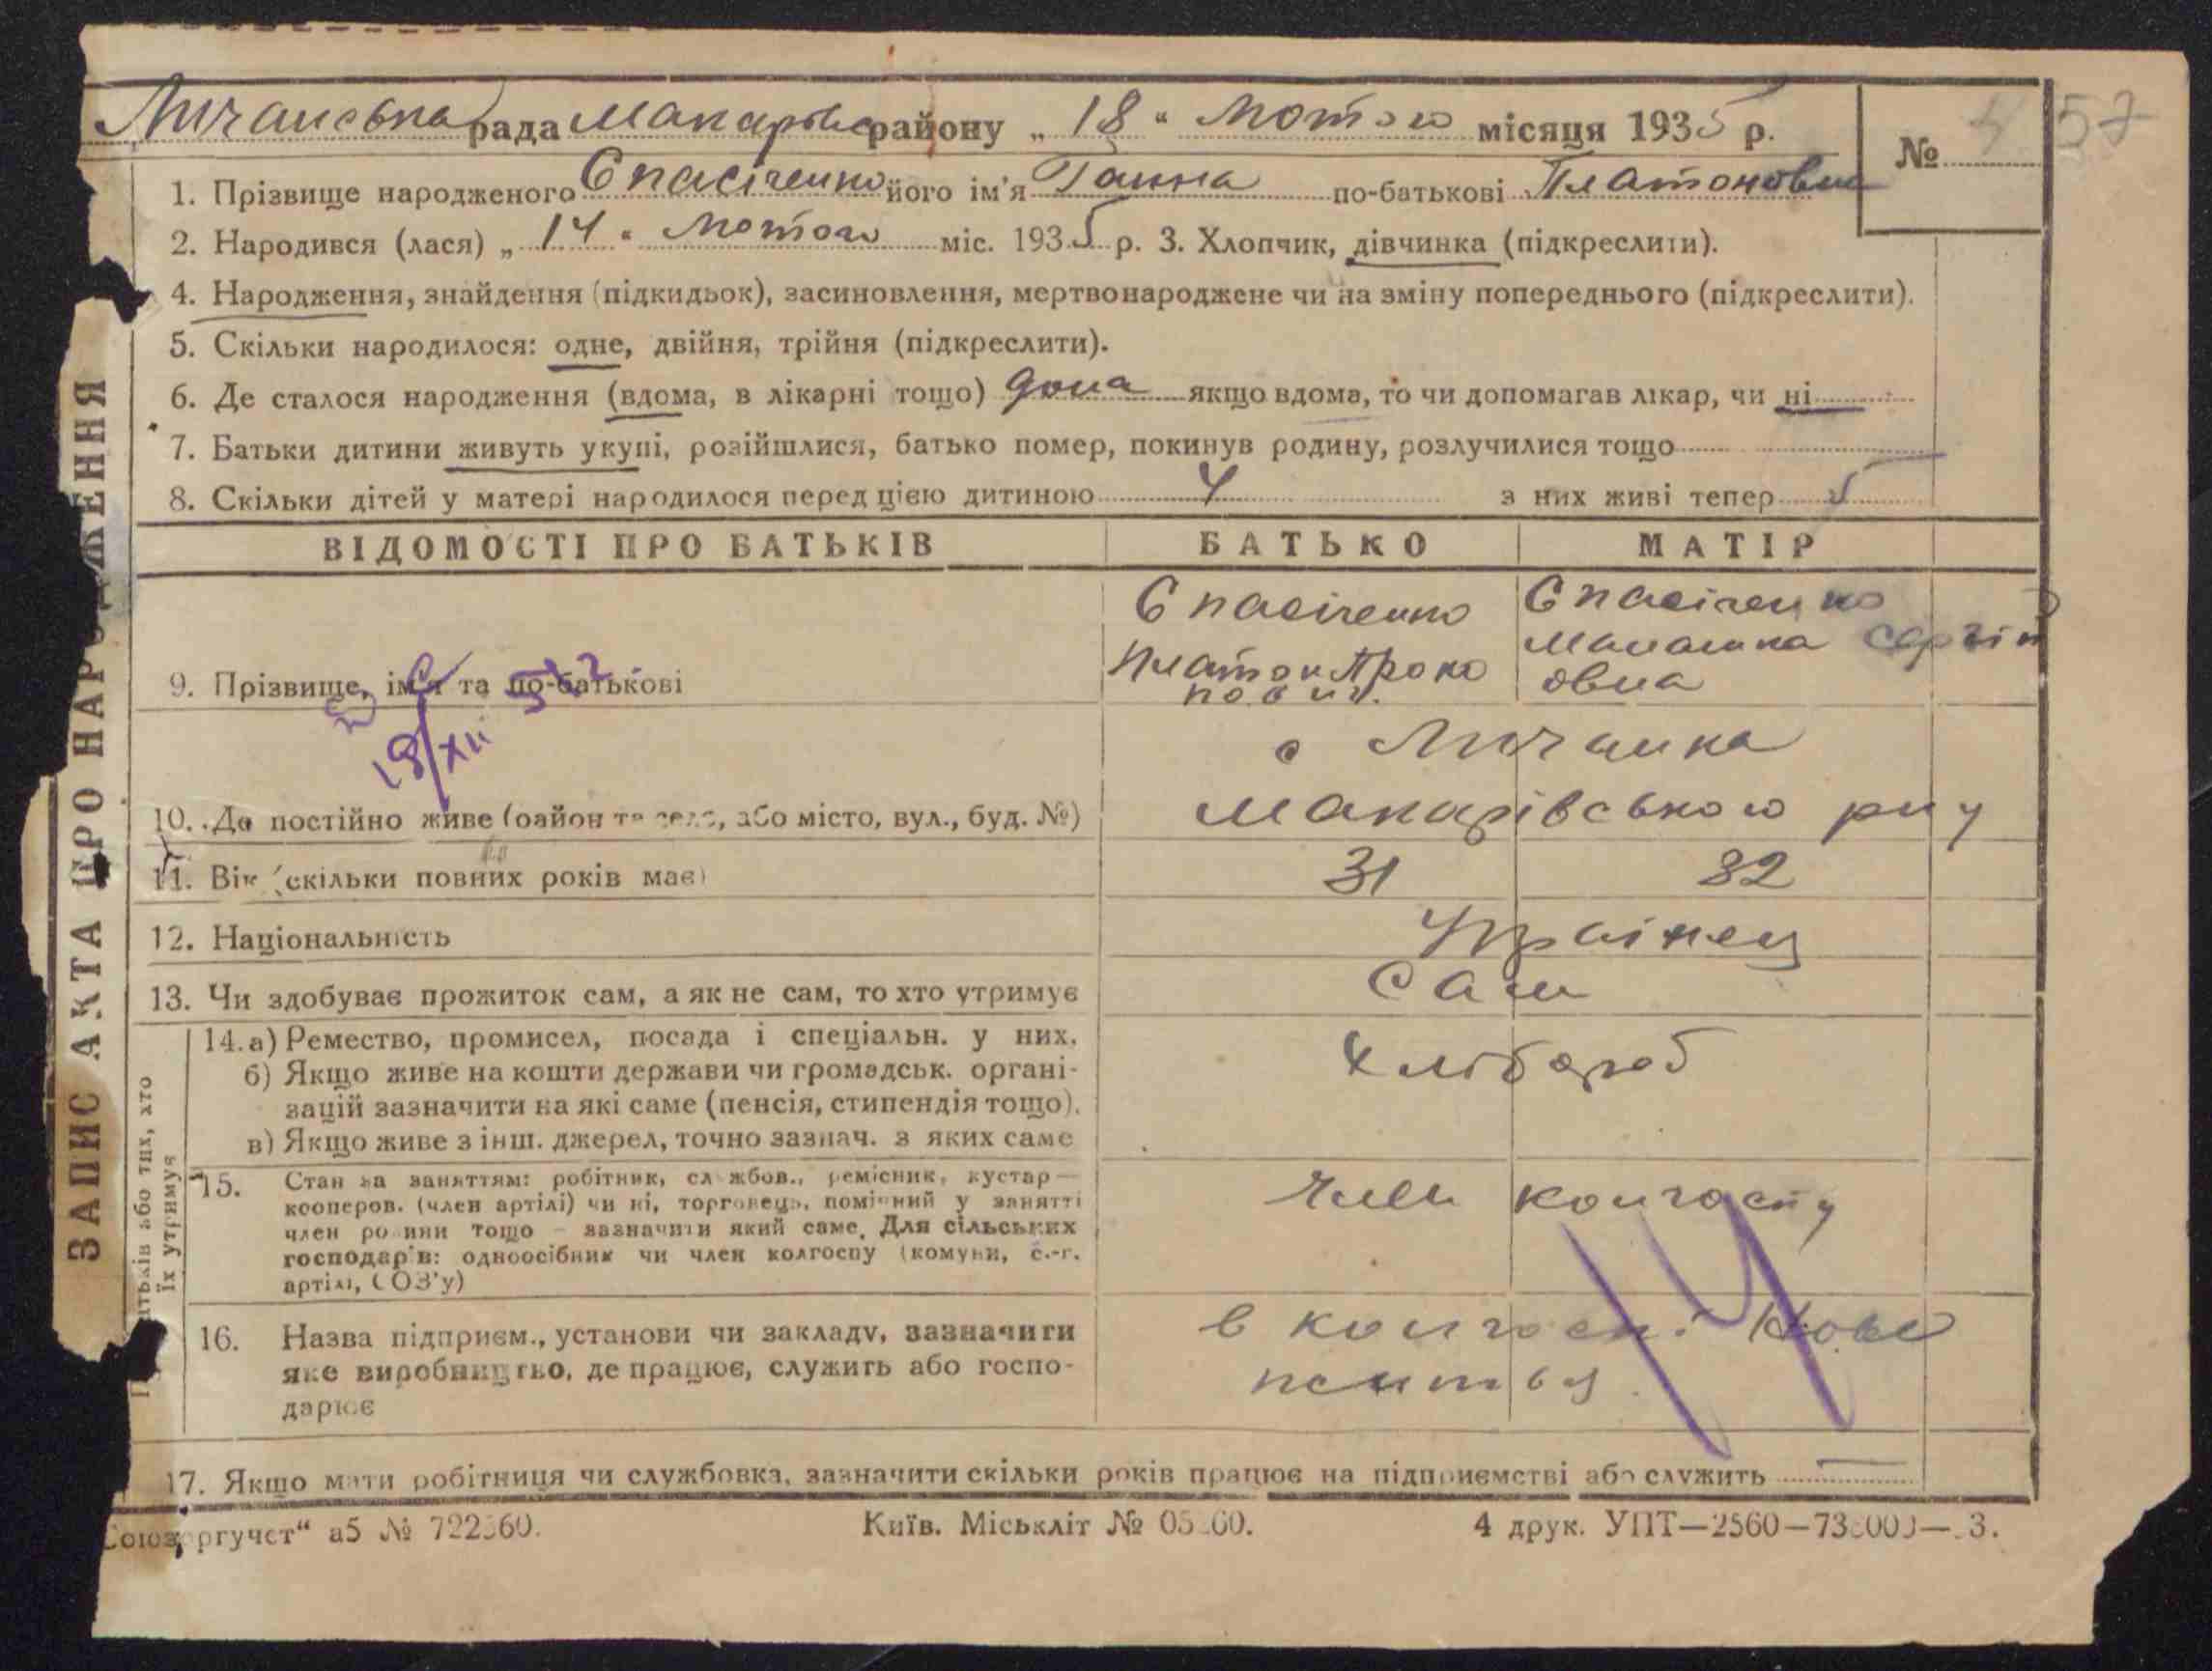 Личанська рада Макарівс району „ 18 “ Лютого місяця 1935 р.
№ 4
57
1. Прізвище народженого Спасіченко його ім'я Ганна по-батькові Платоновна
2. Народився (лася) „ 14 “ Лютого міс. 1935 р. 3. Хлопчик, дівчинка (підкреслити).
4. Народження, знайдення (підкидьок), засиновлення, мертвонароджене чи на зміну попереднього (підкреслити).
5. Скільки народилося: одне, двійня, трійня (підкреслити).
6. Де сталося народження (вдома, в лікарні тощо) дома якщо вдома, то чи допомагав лікар, чи ні
7. Батьки дитини живуть укупі, розійшлися, батько помер, покинув родину, розлучилися тощо
8. Скільки дітей у матері народилося перед цією дитиною 4 з них живі тепер 5
ЗАПИС АКТА ПРО НАРОДЖЕННЯ
ВІДОМОСТІ ПРО БАТЬКІВ БАТЬКО МАТІР
9. Прізвище, ім'я та по-батькові
Спасіченко
Платон Проко
пович.
Спасіченко
Малашка Сергій
овна
18/XII 512
10. Де постійно живе (район та село, або місто, вул., буд. №)
с Личанка
Макарівського р-ну
11. Вік (скільки повних років має) 31 32
12. Національність Українец
13. Чи здобуває прожиток сам, а як не сам, то хто утримує Сам
батьків або тих, хто
їх утримує
14. а) Ремество, промисел, посада і спеціальн. у них.
б) Якщо живе на кошти держави чи громадськ. органі-
зацій зазначити на які саме (пенсія, стипендія тощо).
в) Якщо живе з інш. джерел, точно зазнач. з яких саме
Хлібороб
15. Стан за заняттям: робітник, службов., ремісник, кустар—
кооперов. (член артілі) чи ні, торговець, помічний у занятті
член родини тощо — зазначити який саме. Для сільських
господарів: одноосібник чи член колгоспу (комуни, с.-г.
артілі, СОЗ'у)
Член колгоспу
16. Назва підприєм., установи чи закладу, зазначити
яке виробництво, де працює, служить або госпо-
дарює
в колгоспі Нове
життя
17. Якщо мати робітниця чи службовка, зазначити скільки років працює на підприємстві або служить —
Союзоргучет“ а5 № 722360. Київ. Міськліт № 05 60. 4 друк. УПТ—2560—73